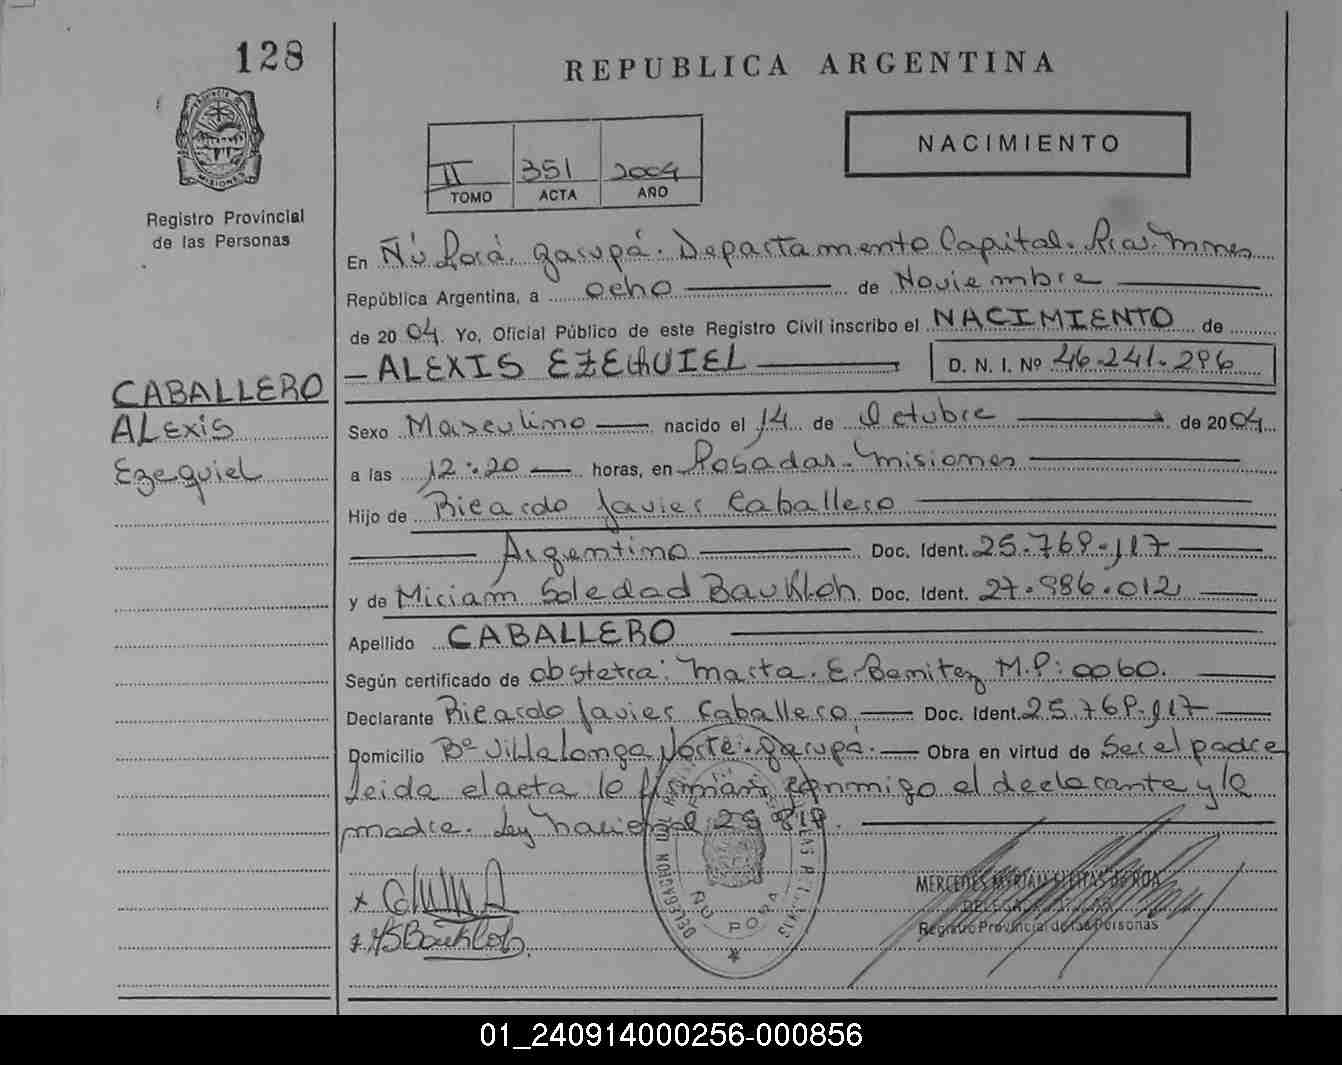 128
REPUBLICA ARGENTINA
PROVINCIA DE
MISIONES
Registro Provincial
de las Personas
II 351 2004
TOMO ACTA AÑO
NACIMIENTO
En Ñú Porá. Garupá. Departamento Capital. Pcia. Mnes
República Argentina, a ocho de Noviembre
de 2004. Yo, Oficial Público de este Registro Civil inscribo el NACIMIENTO de
ALEXIS EZEQUIEL D. N. I. Nº 46.241.296
CABALLERO
ALexis
Ezequiel
Sexo Masculino nacido el 14 de Octubre de 2004
a las 12:20 horas, en Posadas. Misiones
Hijo de Ricardo Javier Caballero
Argentino Doc. Ident. 25.769.117
y de Miriam Soledad Baukloh Doc. Ident. 27.986.012
Apellido CABALLERO
Según certificado de obstetra: Marta. E. Benitez M.P: 0060.
Declarante Ricardo Javier Caballero Doc. Ident. 25.769.117
Domicilio Bº Villalonga Norte. Garupá. Obra en virtud de Ser el padre
Leida el acta la firman conmigo el declarante y la
madre. Ley Nacional 25.819.
x
x MSBaukloh
ÑU PORA
MERCEDES MYRIAM DE ROA
Registro Provincial de las Personas
01_240914000256-000856